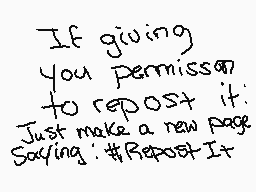 If giving
you permisson
to repost it:
Just make a new page
Saying: #Repost It